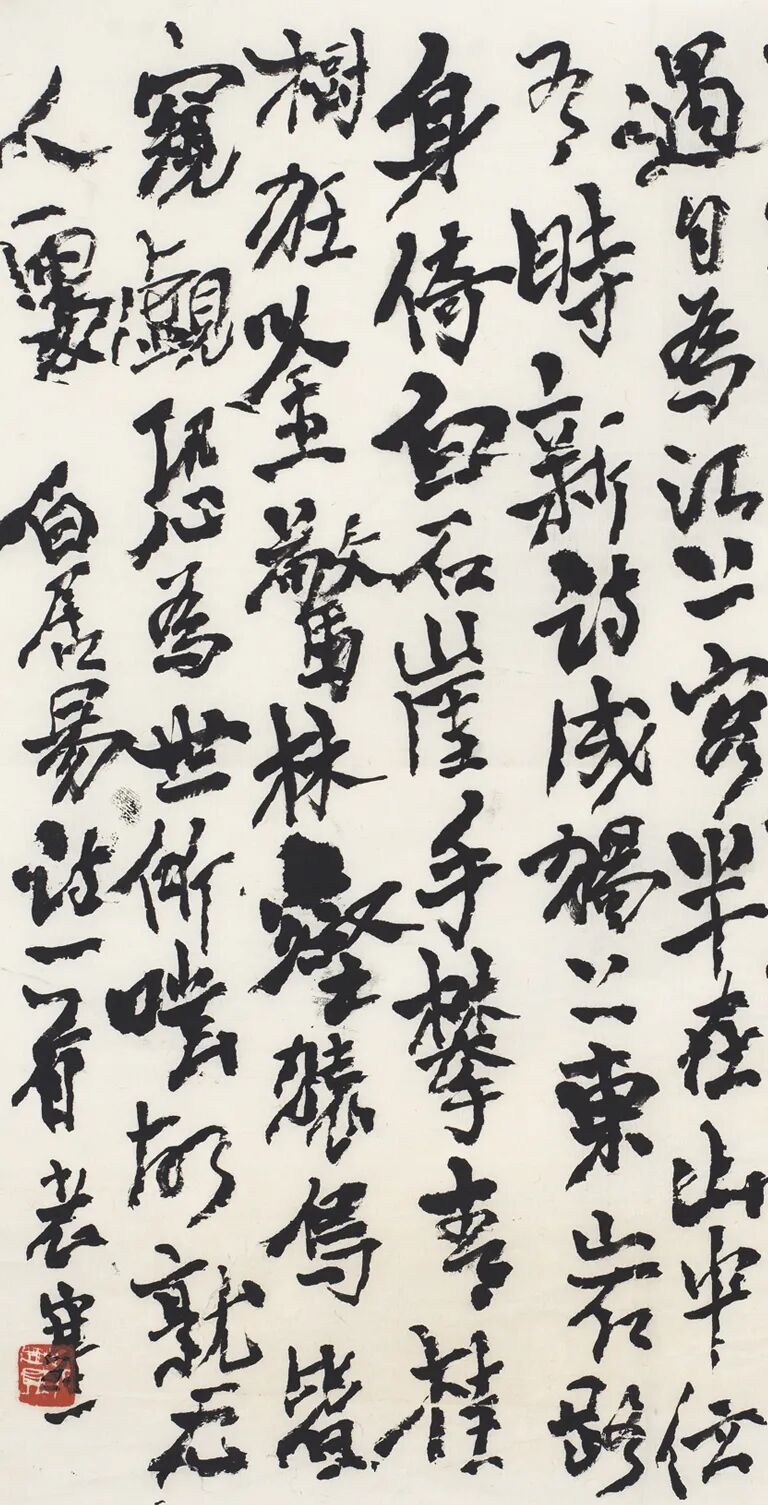 遇自為江上客半在山中住
有時新詩成獨上東岩路
身倚白石崖手攀青桂
樹狂唫驚林壑猿鳥皆
窺覷恐為世所嗤故就无
人處 白居易詩一首